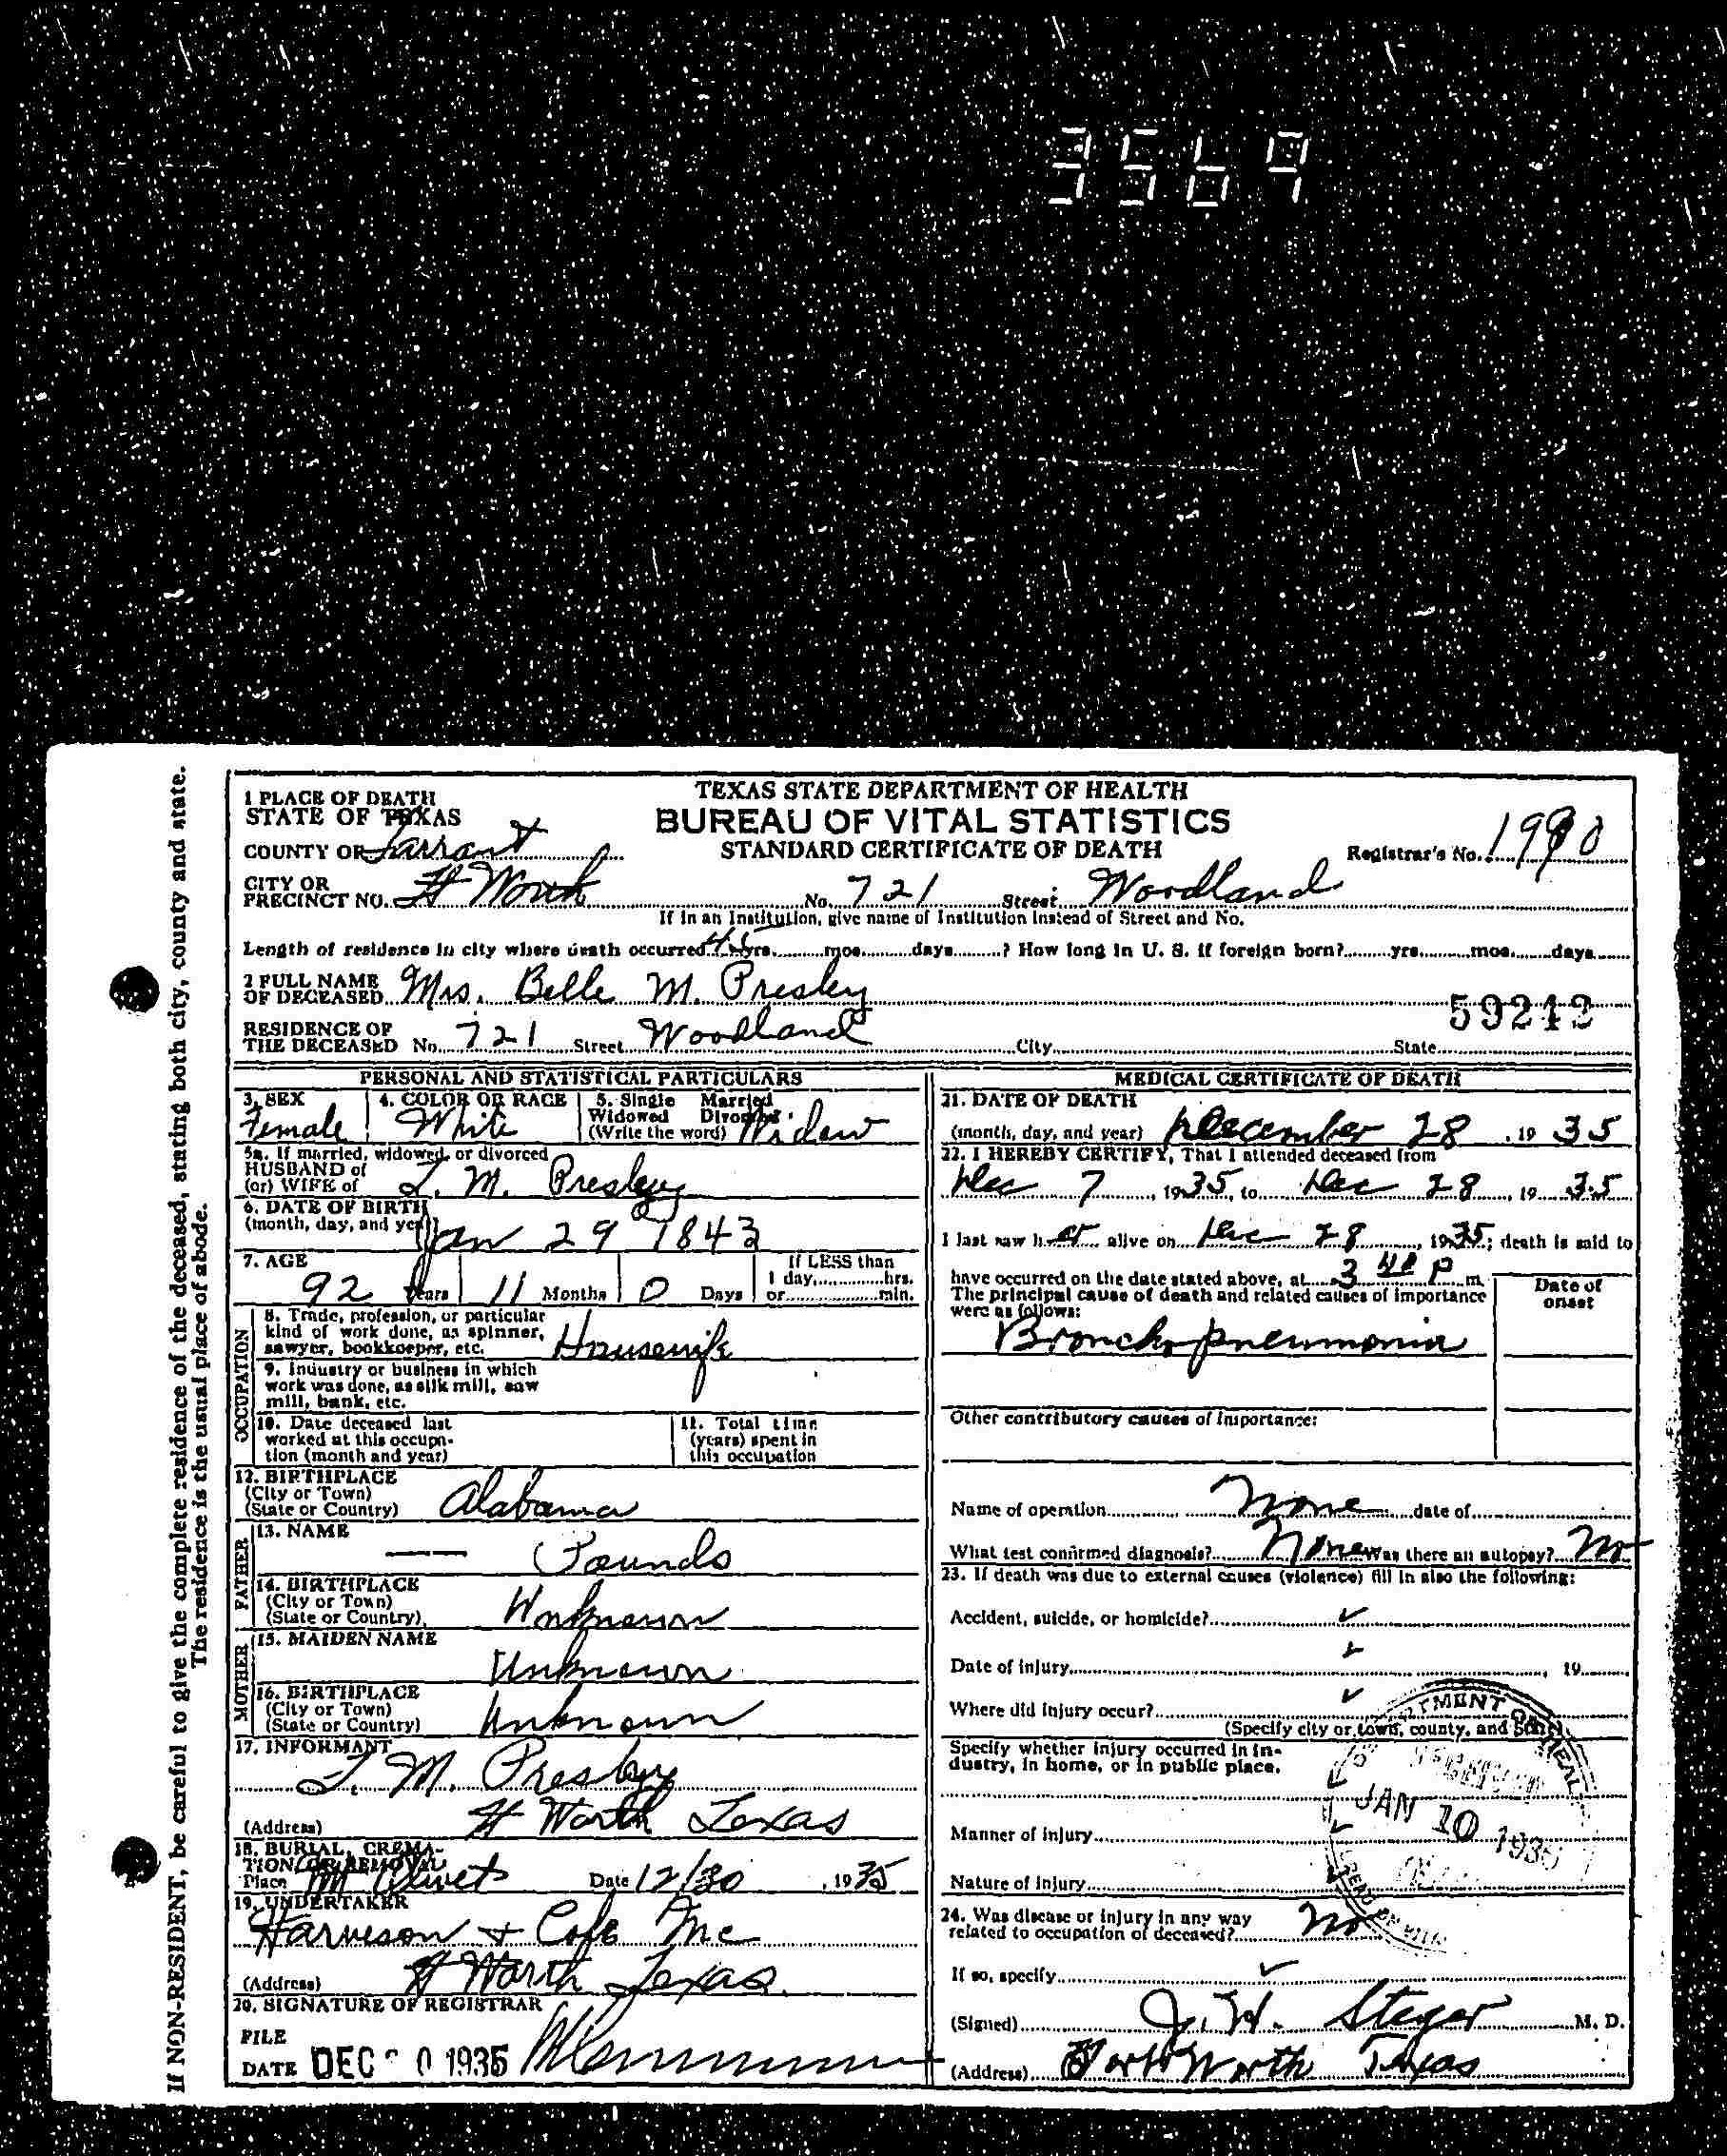 3569
If NON-RESIDENT, be careful to give the complete residence of the deceased, stating both city, county and state.
The residence is the usual place of abode.
1 PLACE OF DEATH
STATE OF TEXAS
TEXAS STATE DEPARTMENT OF HEALTH
BUREAU OF VITAL STATISTICS
STANDARD CERTIFICATE OF DEATH
COUNTY OF Tarrant
Registrar's No.
CITY OR
PRECINCT NO. Ft Worth No. 721 Street Woodland
If in an Institution, give name of Institution instead of Street and No.
Length of residence in city where death occurred 45 yrs. mos. days ? How long in U. S. if foreign born? yrs. mos. days
2 FULL NAME
OF DECEASED Mrs. Belle M. Presley
59242
RESIDENCE OF
THE DECEASED No. 721 Street Woodland City State
PERSONAL AND STATISTICAL PARTICULARS
3. SEX
Female
4. COLOR OR RACE
White
5. Single Married
Widowed Divorced
(Write the word) Widow
5a. If married, widowed, or divorced
HUSBAND of
(or) WIFE of M. Presley
6. DATE OF BIRTH
(month, day, and year) Jan 29 1843
7. AGE
92 Years 11 Months 0 Days
If LESS than
1 day, hrs.
or min.
OCCUPATION
8. Trade, profession, or particular
kind of work done, as spinner,
sawyer, bookkeeper, etc. Housewife
9. Industry or business in which
work was done, as silk mill, saw
mill, bank, etc.
10. Date deceased last
worked at this occupa-
tion (month and year)
11. Total time
(years) spent in
this occupation
12. BIRTHPLACE
(City or Town)
(State or Country) Alabama
FATHER
13. NAME
—— Pounds
14. BIRTHPLACE
(City or Town)
(State or Country) Unknown
MOTHER
15. MAIDEN NAME
Unknown
16. BIRTHPLACE
(City or Town)
(State or Country) Unknown
17. INFORMANT
M. Presley
(Address) Ft Worth Texas
18. BURIAL, CREMA-
TION OR REMOVAL
Place Mt Olivet Date 12/30, 1935
19. UNDERTAKER
Harveson + Cole Inc
(Address) Ft Worth Texas
20. SIGNATURE OF REGISTRAR
FILE
DATE DEC 0 1935
MEDICAL CERTIFICATE OF DEATH
21. DATE OF DEATH
(month, day, and year) December 28, 1935
22. I HEREBY CERTIFY, That I attended deceased from
Dec 7, 1935, to Dec 28, 1935
I last saw her alive on Dec 28, 1935; death is said to
have occurred on the date stated above, at 3 40 P m.
The principal cause of death and related causes of importance
were as follows:
Date of
onset
Bronchopneumonia
Other contributory causes of importance:
Name of operation None date of
What test confirmed diagnosis? None Was there an autopsy? No
23. If death was due to external causes (violence) fill in also the following:
Accident, suicide, or homicide? ✓
Date of injury ✓, 19
Where did injury occur? ✓
(Specify city or town, county, and State)
Specify whether injury occurred in in-
dustry, in home, or in public place.
JAN 10
Manner of injury
Nature of injury
24. Was disease or injury in any way
related to occupation of deceased? No
If so, specify ✓
(Signed) J. H. Steger M. D.
(Address) Fort Worth Texas